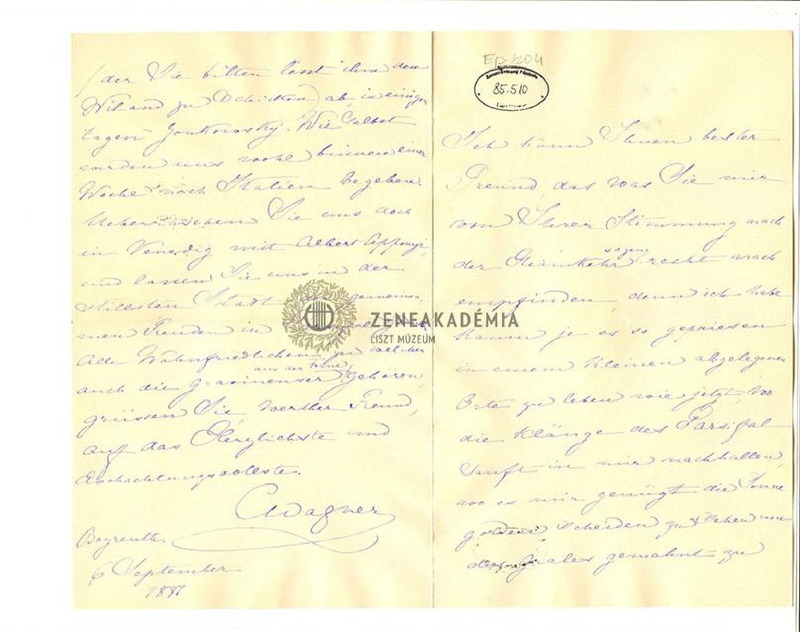 Ep. 1204
85.510
Ich kann Ihnen bester
Freund, das was Sie mir
von Ihrer Stimmung nach
der Heimkehr sagen recht nach
empfinden, denn ich habe
kaum je es so gepriesen
in einem kleinen abgelegenen
Orte zu leben wie jetzt, wo
die Klänge des Parsifal
sanft in mir nachhallen,
wo es mir genügt die Sonne
scheiden zu sehen um
des Grales gemahnt zu
(der Sie bitten lässt ihm den
Wieland zu schicken) ab, in einigen
Tagen Joukovsky. Wir selbst
werden uns wohl binnen einer
Woche nach Italien begeben.
Ueberraschen Sie uns doch
in Venedig mit Albert Apponyi,
und lassen Sie uns in der
stillsten Stadt
men Freuden in
Alle Wahnfriedlichen zu welchen
auch die Gravinenser aus der Ferne gehören
grüssen Sie, werther Freund,
auf das Herzlichste und
Hochachtungsvollste.
CWagner
Bayreuth.
6 September
ZENEAKADÉMIA
LISZT MÚZEUM